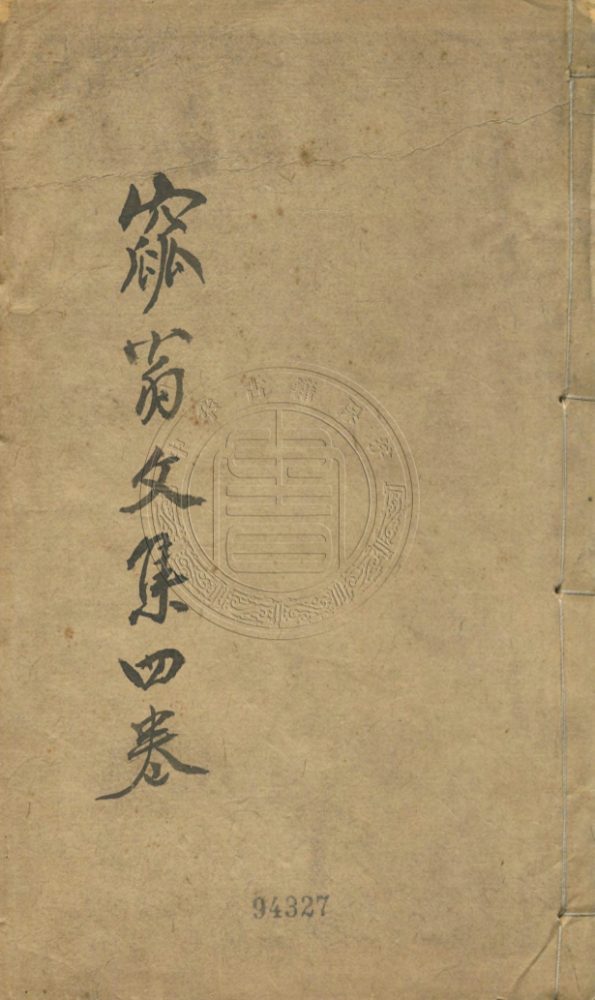 窳翁文集四卷
94327